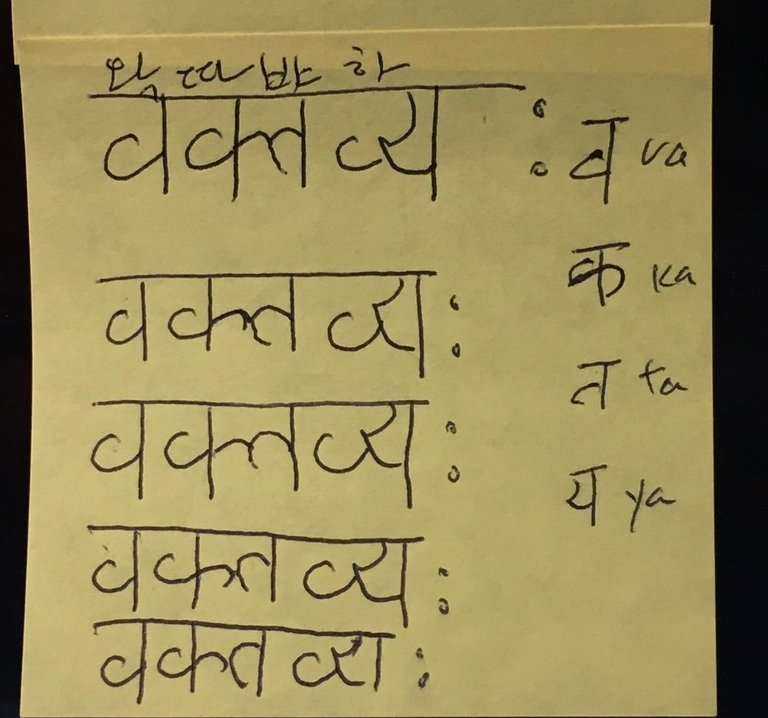 왁따뱌하
वक्तव्यः
वक्तव्यः
वक्तव्यः
वक्तव्यः
वक्तव्यः
व va
क ka
त ta
य ya